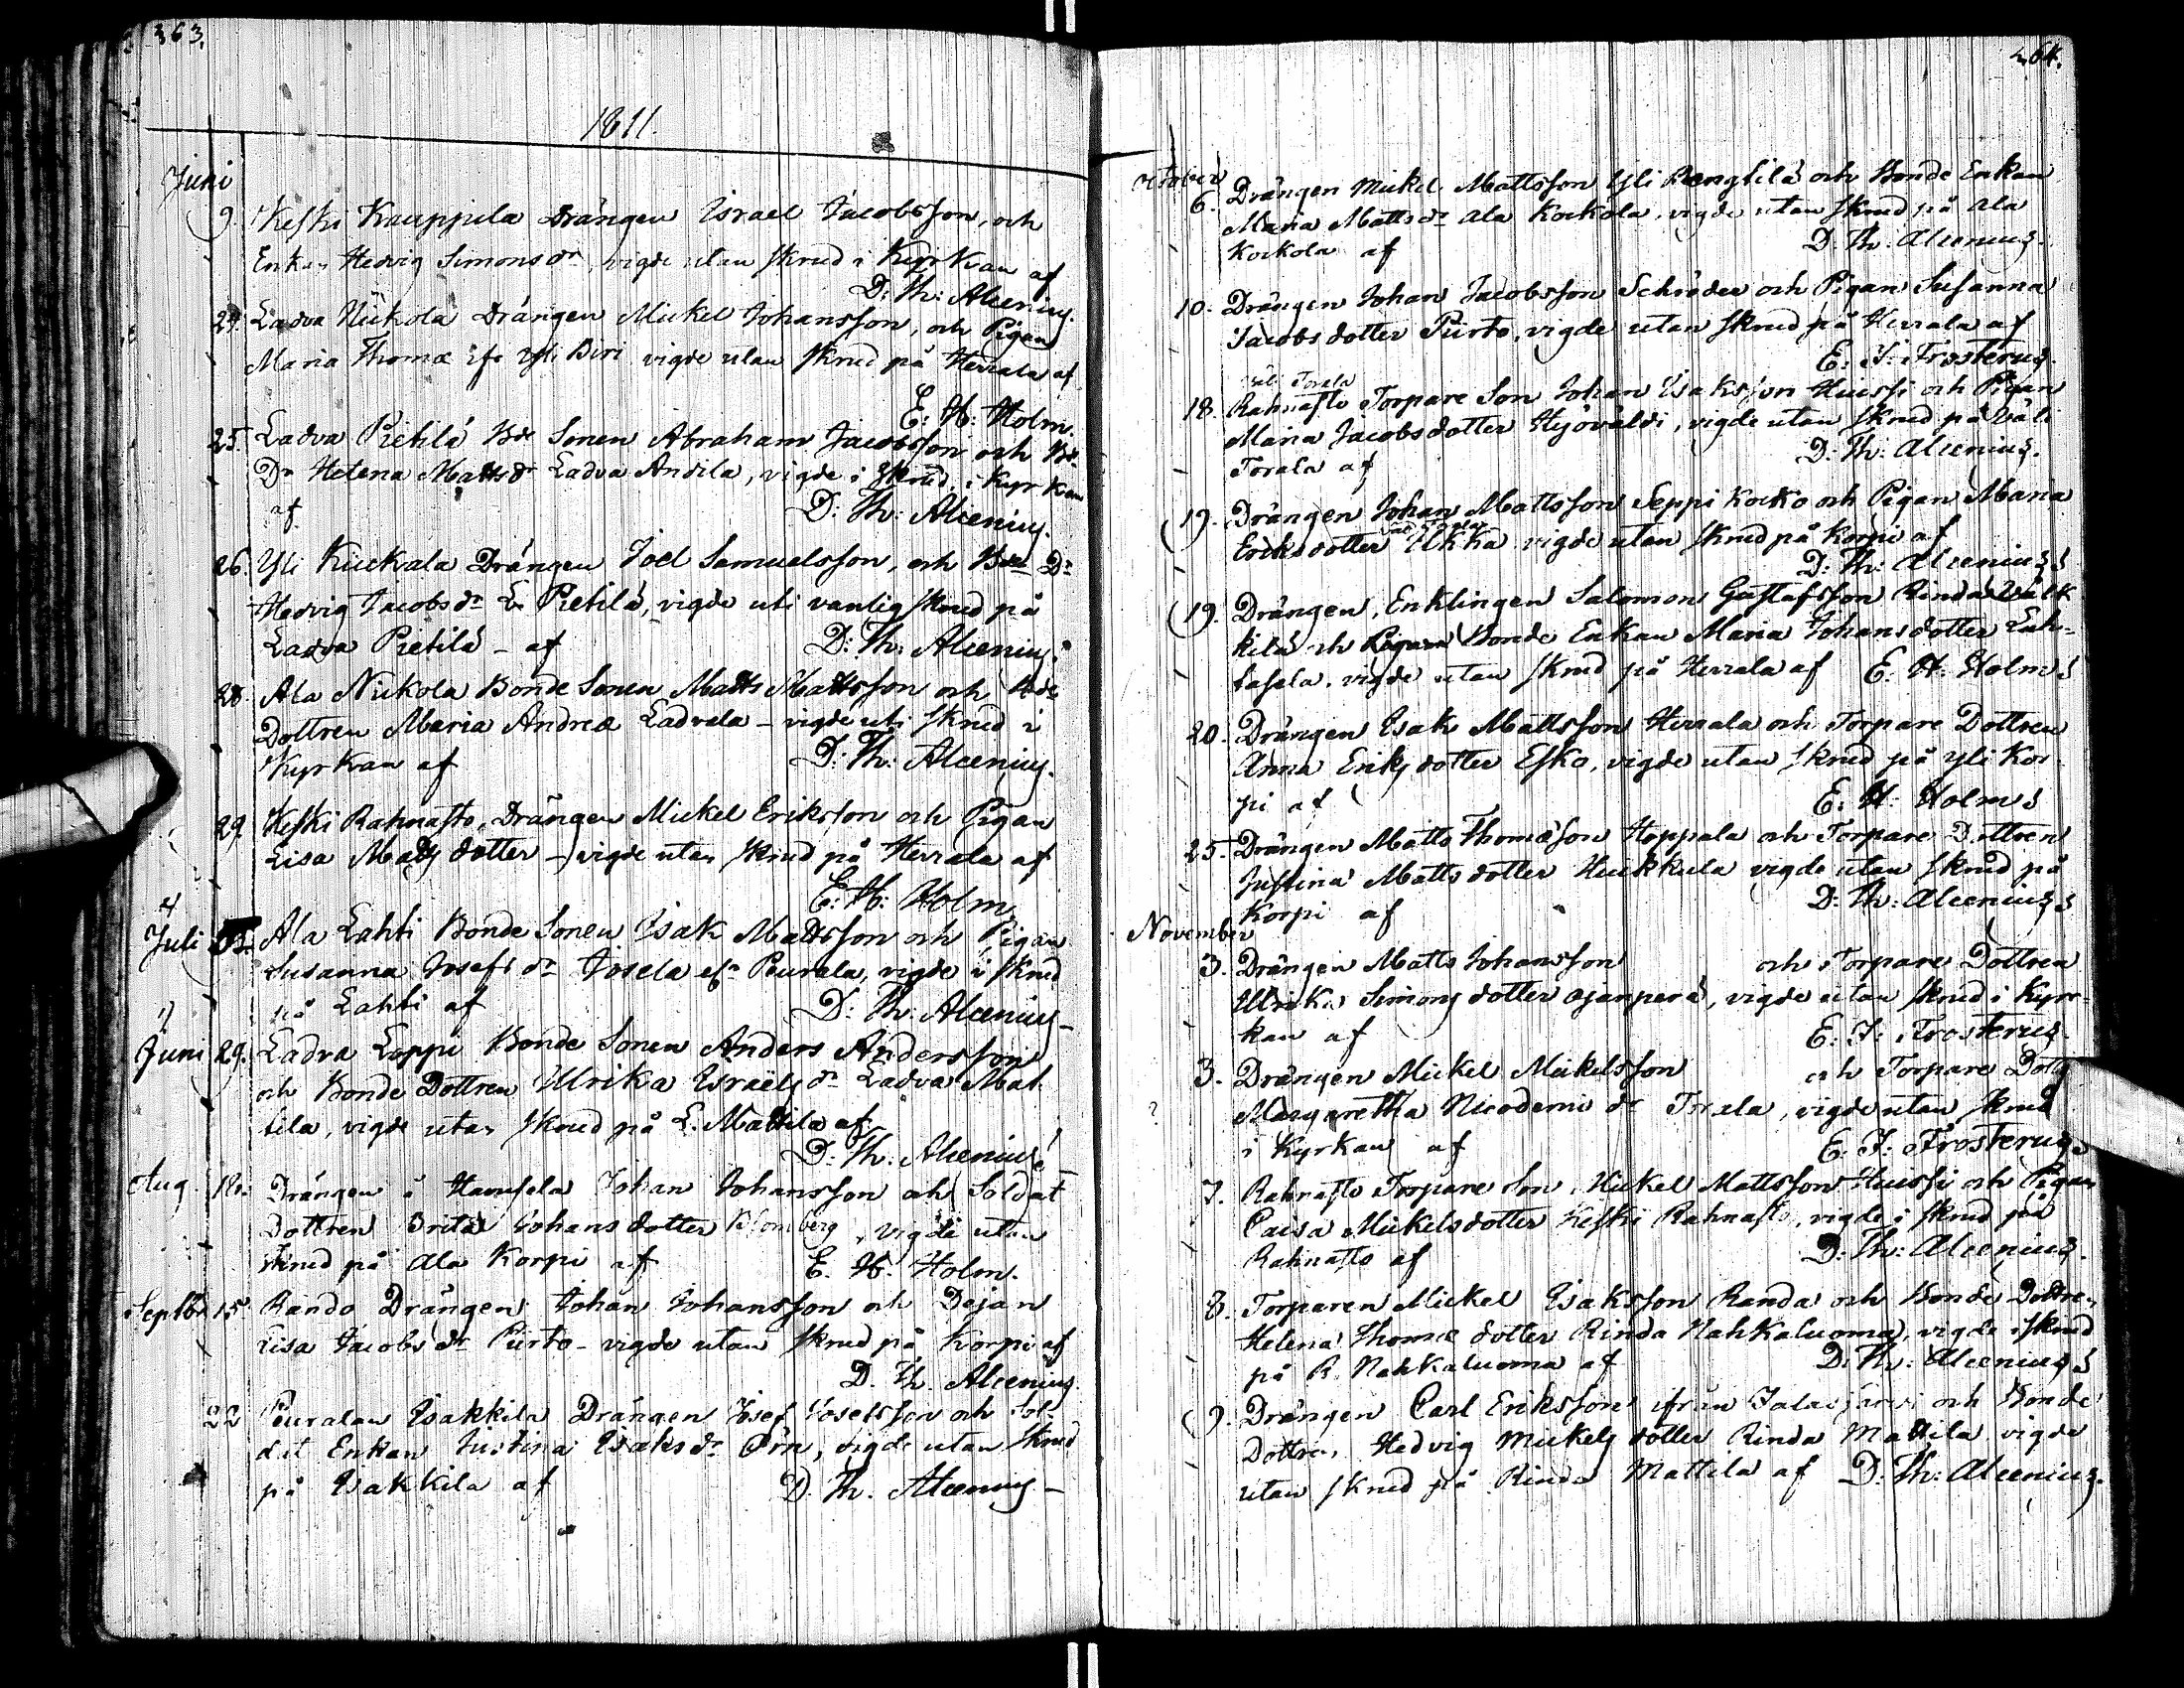 363.
1811.
Juni
9. Keski Knuppila Drängen Israel Jacobsson, och
Enkan Hedvig Simons dr, vigde utan skrud i Kyrkan af
D: Th: Alcenius.
24. Ladva Nickola Drängen Mickel Johansson, och Pigan
Maria Thomæ Yli Biri vigde utan skrud på Herrala af
E: H: Holm.
25. Ladva Pietilä Bde Sonen Abraham Jacobsson och Bde
Dr Helena Matts dr Ladva Andila, vigde i skrud i Kyrkan
af D: Th: Alcenius.
26. Yli Kuckala Drängen Joel Samuelsson, och Bde Dr
Hedvig Jacobs dr L. Pietilä, vigde uti vanlig skrud på
Ladva Pietilä - af D: Th: Alcenius.
28. Ala Nickola Bonde Sonen Matts Mattsson och Bde
Dottren Maria Andreæ Ladvala - vigde uti skrud i
Kyrkan af D: Th: Alcenius.
29. Keski Rahnasto, Drängen Mickel Eriksson och Pigan
Lisa Matts dotter - vigde utan skrud på Herrala af
E: H: Holm.
Juli Ala Lahti Bonde Sonen Isak Mattsson och Pigan
Susanna Josefs dr Josela Peurala, vigde i skrud
på Lahti af D: Th: Alcenius -
Juni 29. Ladva Loppi Bonde Sonen Anders Andersson
och Bonde Dottren Ulrika Israels dr Ladva Mat
tila, vigde utan skrud på L. Mattila af
D: Th: Alcenius
Aug. 18. Drängen å Hannsela Johan Johansson och Soldat
Dottren Brita Johans dotter Blomberg, vigde utan
skrud på Ala Korpi af E. H. Holm.
Septbr 15. Rando Drängen Johan Johansson och Dejan
Lisa Jacobs dr Piirto - vigde utan skrud på Korpi af
D. Th. Alcenius
22 Peuralan Isakkila Drängen Josef Josefsson och Sol
dat Enkan Justina Isaks dr Örn, vigde utan skrud
på Isakkila af D. Th. Alcenius -
364.
October
6. Drängen Mickel Mattsson Yli Rengsilä och Bonde Enkan
Maria Matts dr Ala Kockola, vigde utan skrud på Ala
Kockola af D: Th: Alcenius.
10. Drängen Johan Jacobsson Schröder och Pigan Susanna
Jacobs dotter Piirto, vigde utan skrud på Herrala af
E: J: Frosterus.
Väli Torala
18. Rahnasto Torpare Son Johan Isaksson Huissi och Pigan
Maria Jacobs dotter Hyöväldi, vigde utan skrud på Väli
Torala af D: Th: Alcenius.
19. Drängen Johan Mattsson Seppi Kocko och Pigan Maria
Eriks dotter Ukka vigde utan skrud på Korpi af
D: Th: Alcenius
19. Drängen, Enklingen Salomon Gustafsson Rinda Välk
kilä och Pigan Bonde Enkan Maria Johans dotter Luh=
tasela, vigde utan skrud på Herrala af E: H: Holm
20. Drängen Isak Mattsson Herrala och Torpare Dottren
Anna Eriks dotter Esko, vigde utan skrud på Yli Kor
pi af E: H: Holm
25. Drängen Matts Thomæson Hoppala och Torpare Dottren
Justina Matts dotter Huikkula vigde utan skrud på
Korpi af D: Th: Alcenius
November
3. Drängen Matts Johansson och Torpare Dottren
Ulrika Simons dotter Ojanperä, vigde utan skrud i Kyr=
kan af E: J: Frosterus
3. Drängen Mickel Mickelsson och Torpare Dott
Margaretha Nicodemi dr Torala, vigde utan skrud
i Kyrkan af E: J: Frosterus
7. Rahnasto Torpare Son, Mickel Mattsson Huissi och Pigan
Caisa Mickels dotter Keski Rahnasto, vigde i skrud på
Rahnasto af D: Th: Alcenius.
8. Torparen Mickel Isaksson Randa och Bonde Dottren
Helena Thomæ dotter Rinda Nahkaluoma, vigde i skrud
på R. Nahkaluoma af D: Th: Alcenius
9. Drängen Carl Eriksson ifrån Jalasjärvi och Bonde
Dottren Hedvig Mickels dotter Rinda Mattila vigde
utan skrud på Rinda Mattila af D: Th: Alcenius.